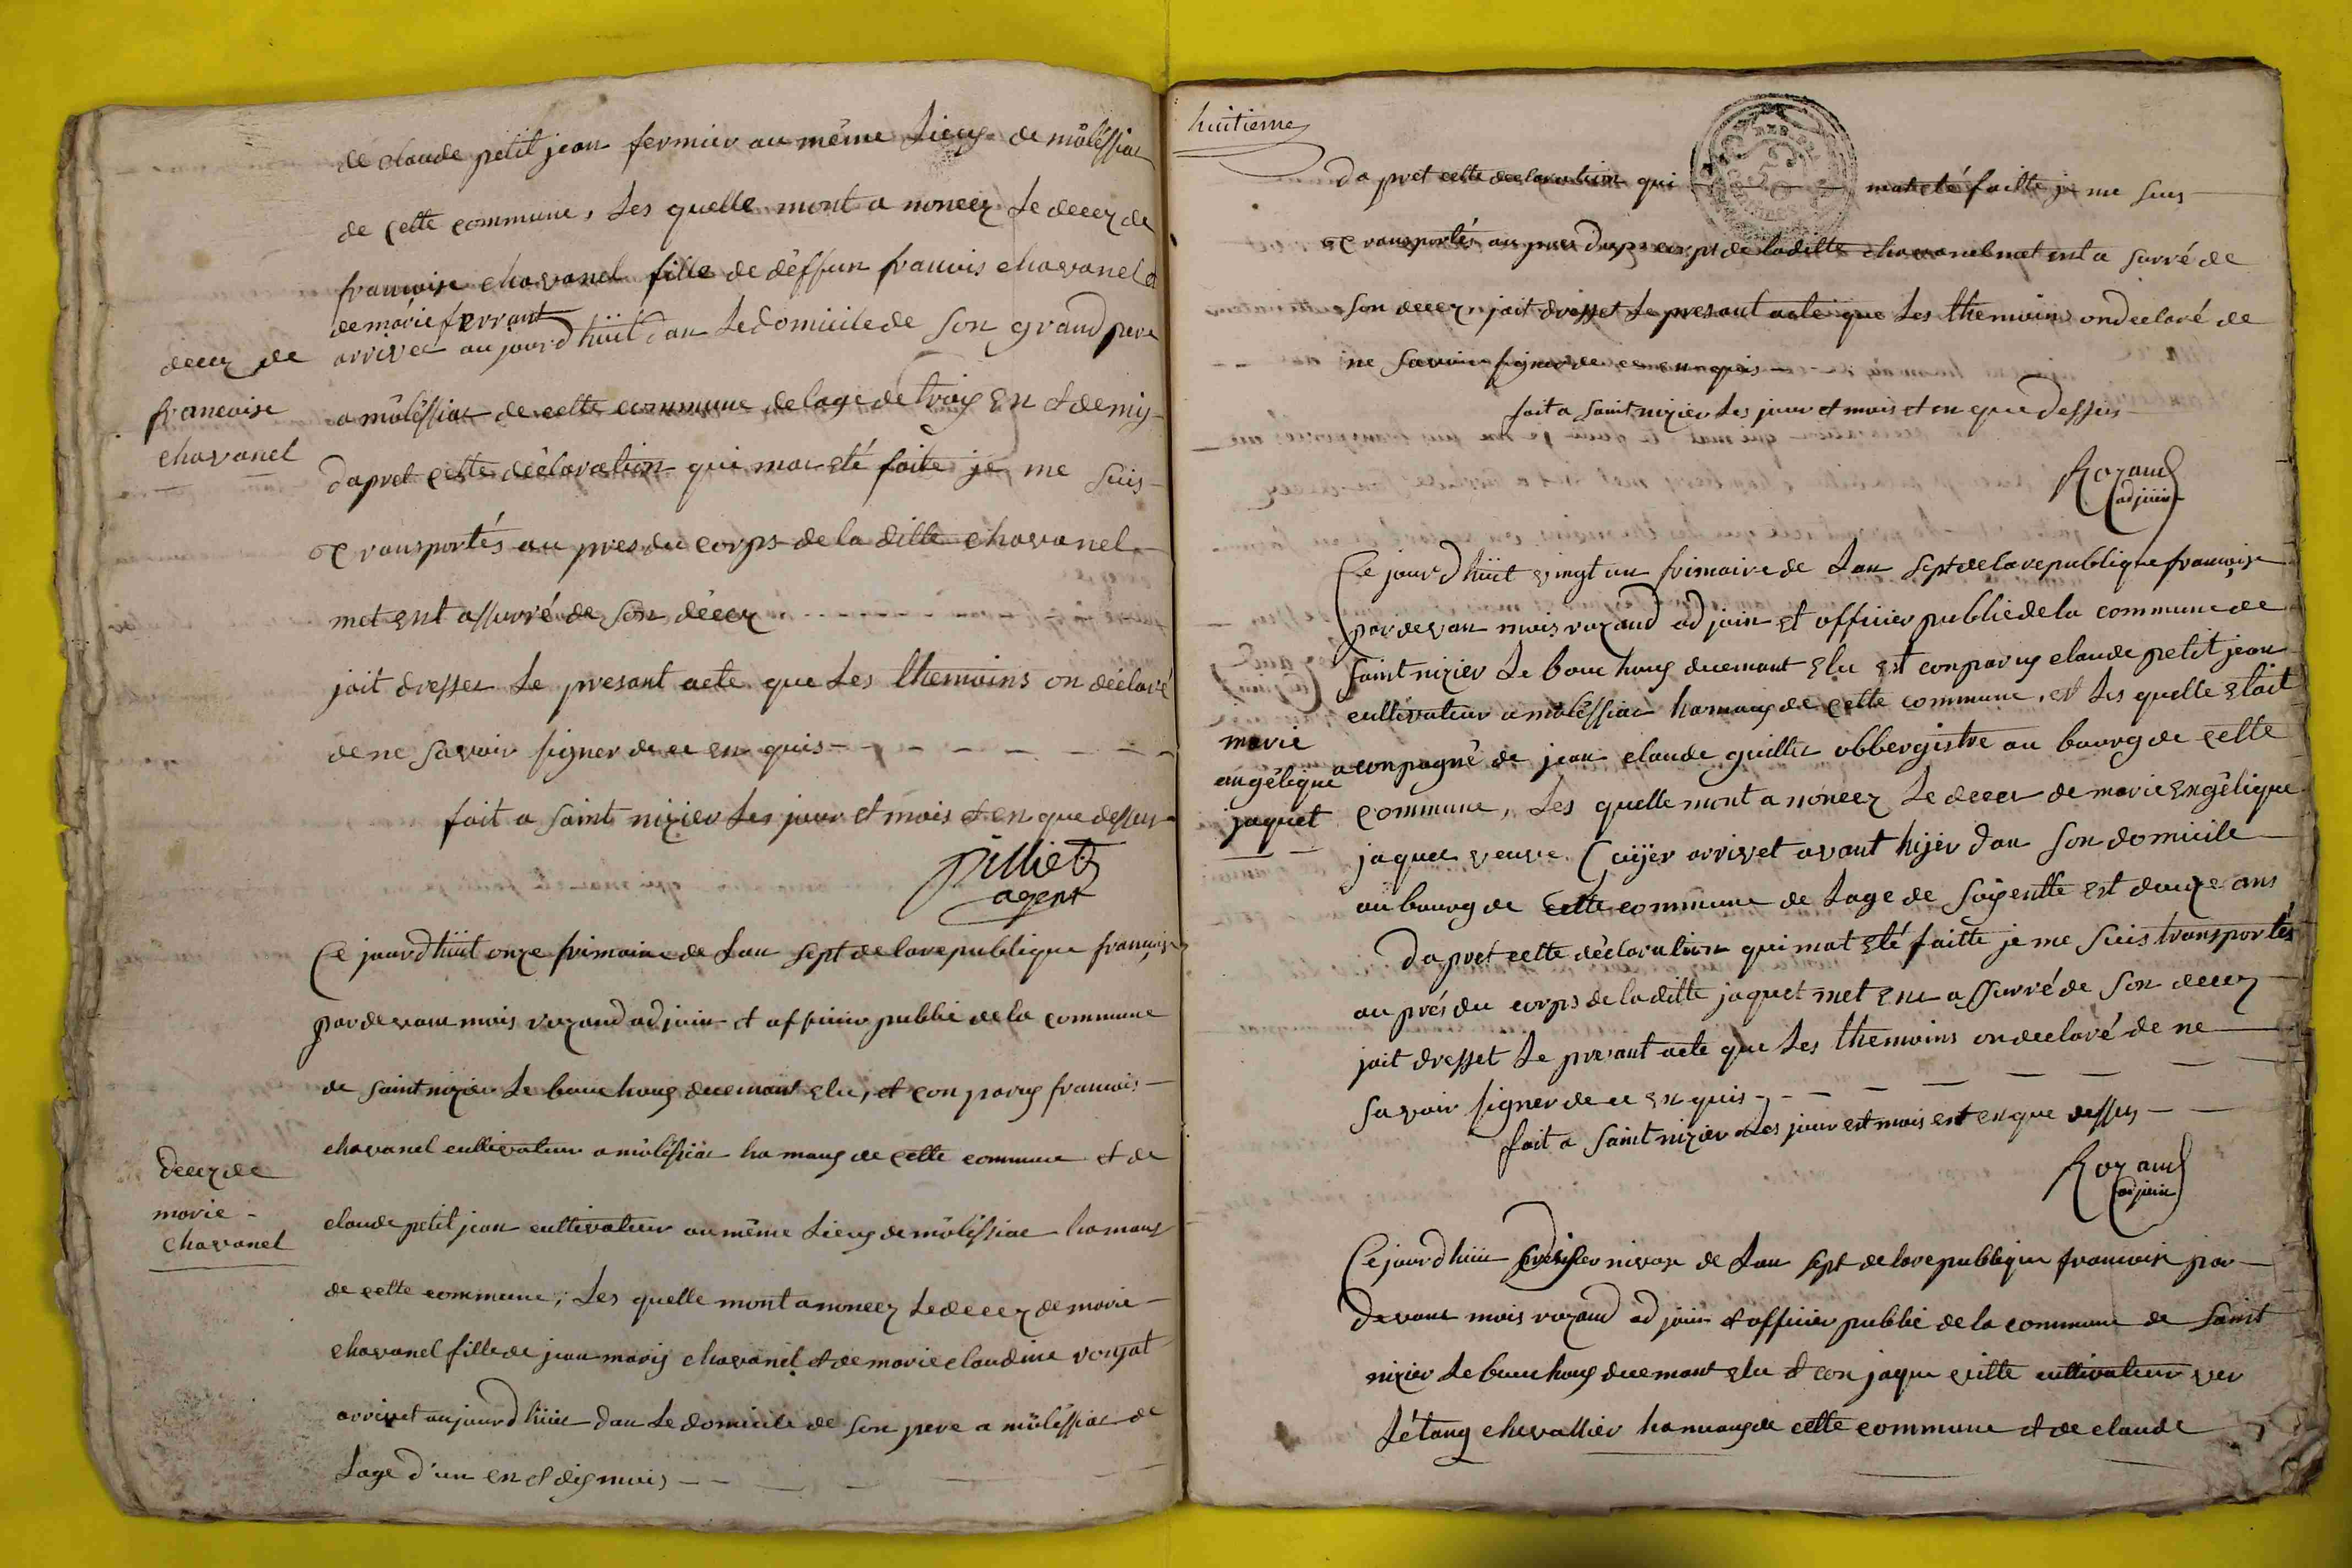 de claude petit jean fermier au même Lieuy de môlêssiat
de cette commune, Les quelle mont a noncez Le decez de
francoise chavanel fille de deffun francois chavanel et
de marie ferrant
arrivet aujourd'huit dan Le domicile de son grand pere
decez de
francoise
chavanel
a môlêssiat de cette commune de lage de troy en et demy
dapret cette déclaration qui mat eté faite je me suis
transportés au pres du corps de la ditte chavanel
met ent assurré de son décez
jait dresser Le presant acte que Les themoins on déclaré
de ne savoir signer de ce en quis
fait a saint nizier Les jour et mois et en que dessus
pilliet
agent
Ce jourd'huit onze frimaire de Lan sept de la republique francoise
par devant mois rozand adjoin et officier public de la commune
de saint nizier Le bouchoug duemant elu, et conparuy francois
chavanel cultivateur a môlêssiat hamaug de cette commune et de
decez de
marie
chavanel
claude petit jean cultivateur au même Lieuy de môlêssiat hamaug
de cette commune; Les quelle mont a noncez Le decez de marie
chavanel fille de jean mariy chavanel et de marie claudine vonjat
arrivet aujourd'huit dan Le domicile de son pere a môlêssiat de
Lage d'un en et dix mois
huitieme
dapret cette declaration qui mat eté faitte je me suis
transportés au pres du corps de laditte chavanel met ent a surré de
son decez jait dresset Le presant acte que Les themoins on declaré de
ne savoir signer de ce en quis
fait a saint nizier Les jour et mois et en que dessus
Rozand
adjoin
Ce jourd'huit vingt un frimaire de Lan sept de la republique francoise
par devan mois rozand adjoin et officier public de la commune de
saint nizier Le bouchoug duemant elu est conparuy claude petit jean
cultivateur a môlêssiat hamaug de cette commune, est Les quelle etait
marie
angélique
jaquet
aconpagné de jean claude guillet obbergistre au bourg de cette
commune, Les quelle mont a noncez Le decez de marie engélique
jaquet veuve Cuijer arrivet avant hijer dan son domicile
au bourg de cette commune de Lage de soisentte est douze ans
dapret cette déclaration qui mat eté faitte je me suis transportés
au prés du corps de laditte jaquet met ent assurré de son decez
jait dresset Le presant acte que Les themoins on declaré de ne
savoir signer de ce en quis
fait a saint nizier Les jour est mois est en que dessus
Rozand
adjoin
Ce jourd'huit nivose de Lan sept de la republique francoise par
devant mois rozand adjoin et officier public de la commune de saint
nizier Le bouchoug duemant elu et con jaque vitte cultivateur ver
Létang chevallier hamaug de cette commune et de claude